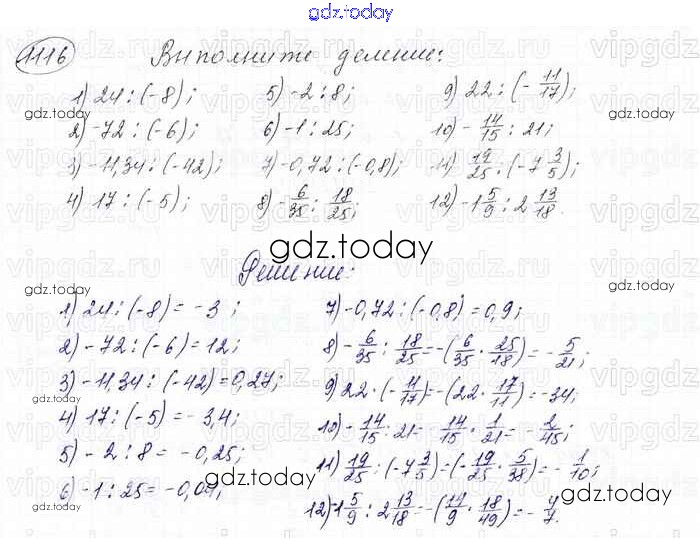 gdz.today
1116 Выполните деление:
1) 24 : (-8); 5) -2 : 8; 9) 22 : (- 11/17);
2) -72 : (-6); 6) -1 : 25; 10) - 14/15 : 21;
3) -11,34 : (-42); 7) -0,72 : (-0,8); 11) 19/25 : (-7 3/5);
4) 17 : (-5); 8) - 6/35 : 18/25; 12) -1 5/9 : 2 13/18.
gdz.today
Решение:
1) 24 : (-8) = -3;
2) -72 : (-6) = 12;
3) -11,34 : (-42) = 0,27;
4) 17 : (-5) = -3,4;
5) -2 : 8 = -0,25;
6) -1 : 25 = -0,04;
7) -0,72 : (-0,8) = 0,9;
8) - 6/35 : 18/25 = -(6/35 · 25/18) = - 5/21;
9) 22 · (- 11/17) = -(22 · 17/11) = -34;
10) - 14/15 : 21 = - 14/15 · 1/21 = - 2/45;
11) 19/25 : (-7 3/5) = (- 19/25 · 5/38) = - 1/10;
12) -1 5/9 : 2 13/18 = -(14/9 · 18/49) = - 4/7.
gdz.today
gdz.today
gdz.today
gdz.today
gdz.today
gdz.today
gdz.today
gdz.today
vipgdz.ru